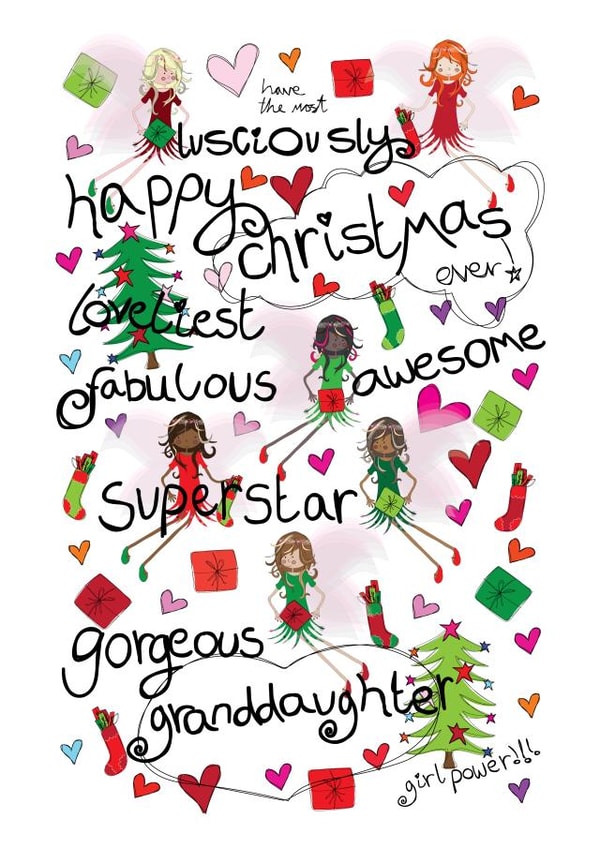 have
the most
lusciously
happy
christmas
ever
loveliest
fabulous awesome
superstar
gorgeous
granddaughter
girl power!!!